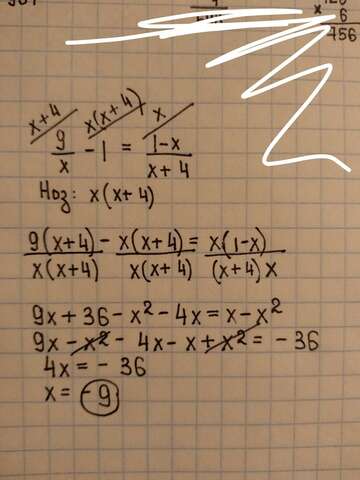 6
456
x+4 x(x+4) x
9/x - 1 = 1-x/x+4
Ноз: x(x+4)
9(x+4)/x(x+4) - x(x+4)/x(x+4) = x(1-x)/(x+4)x
9x+36-x²-4x=x-x²
9x-x²-4x-x+x²=-36
4x=-36
x=-9